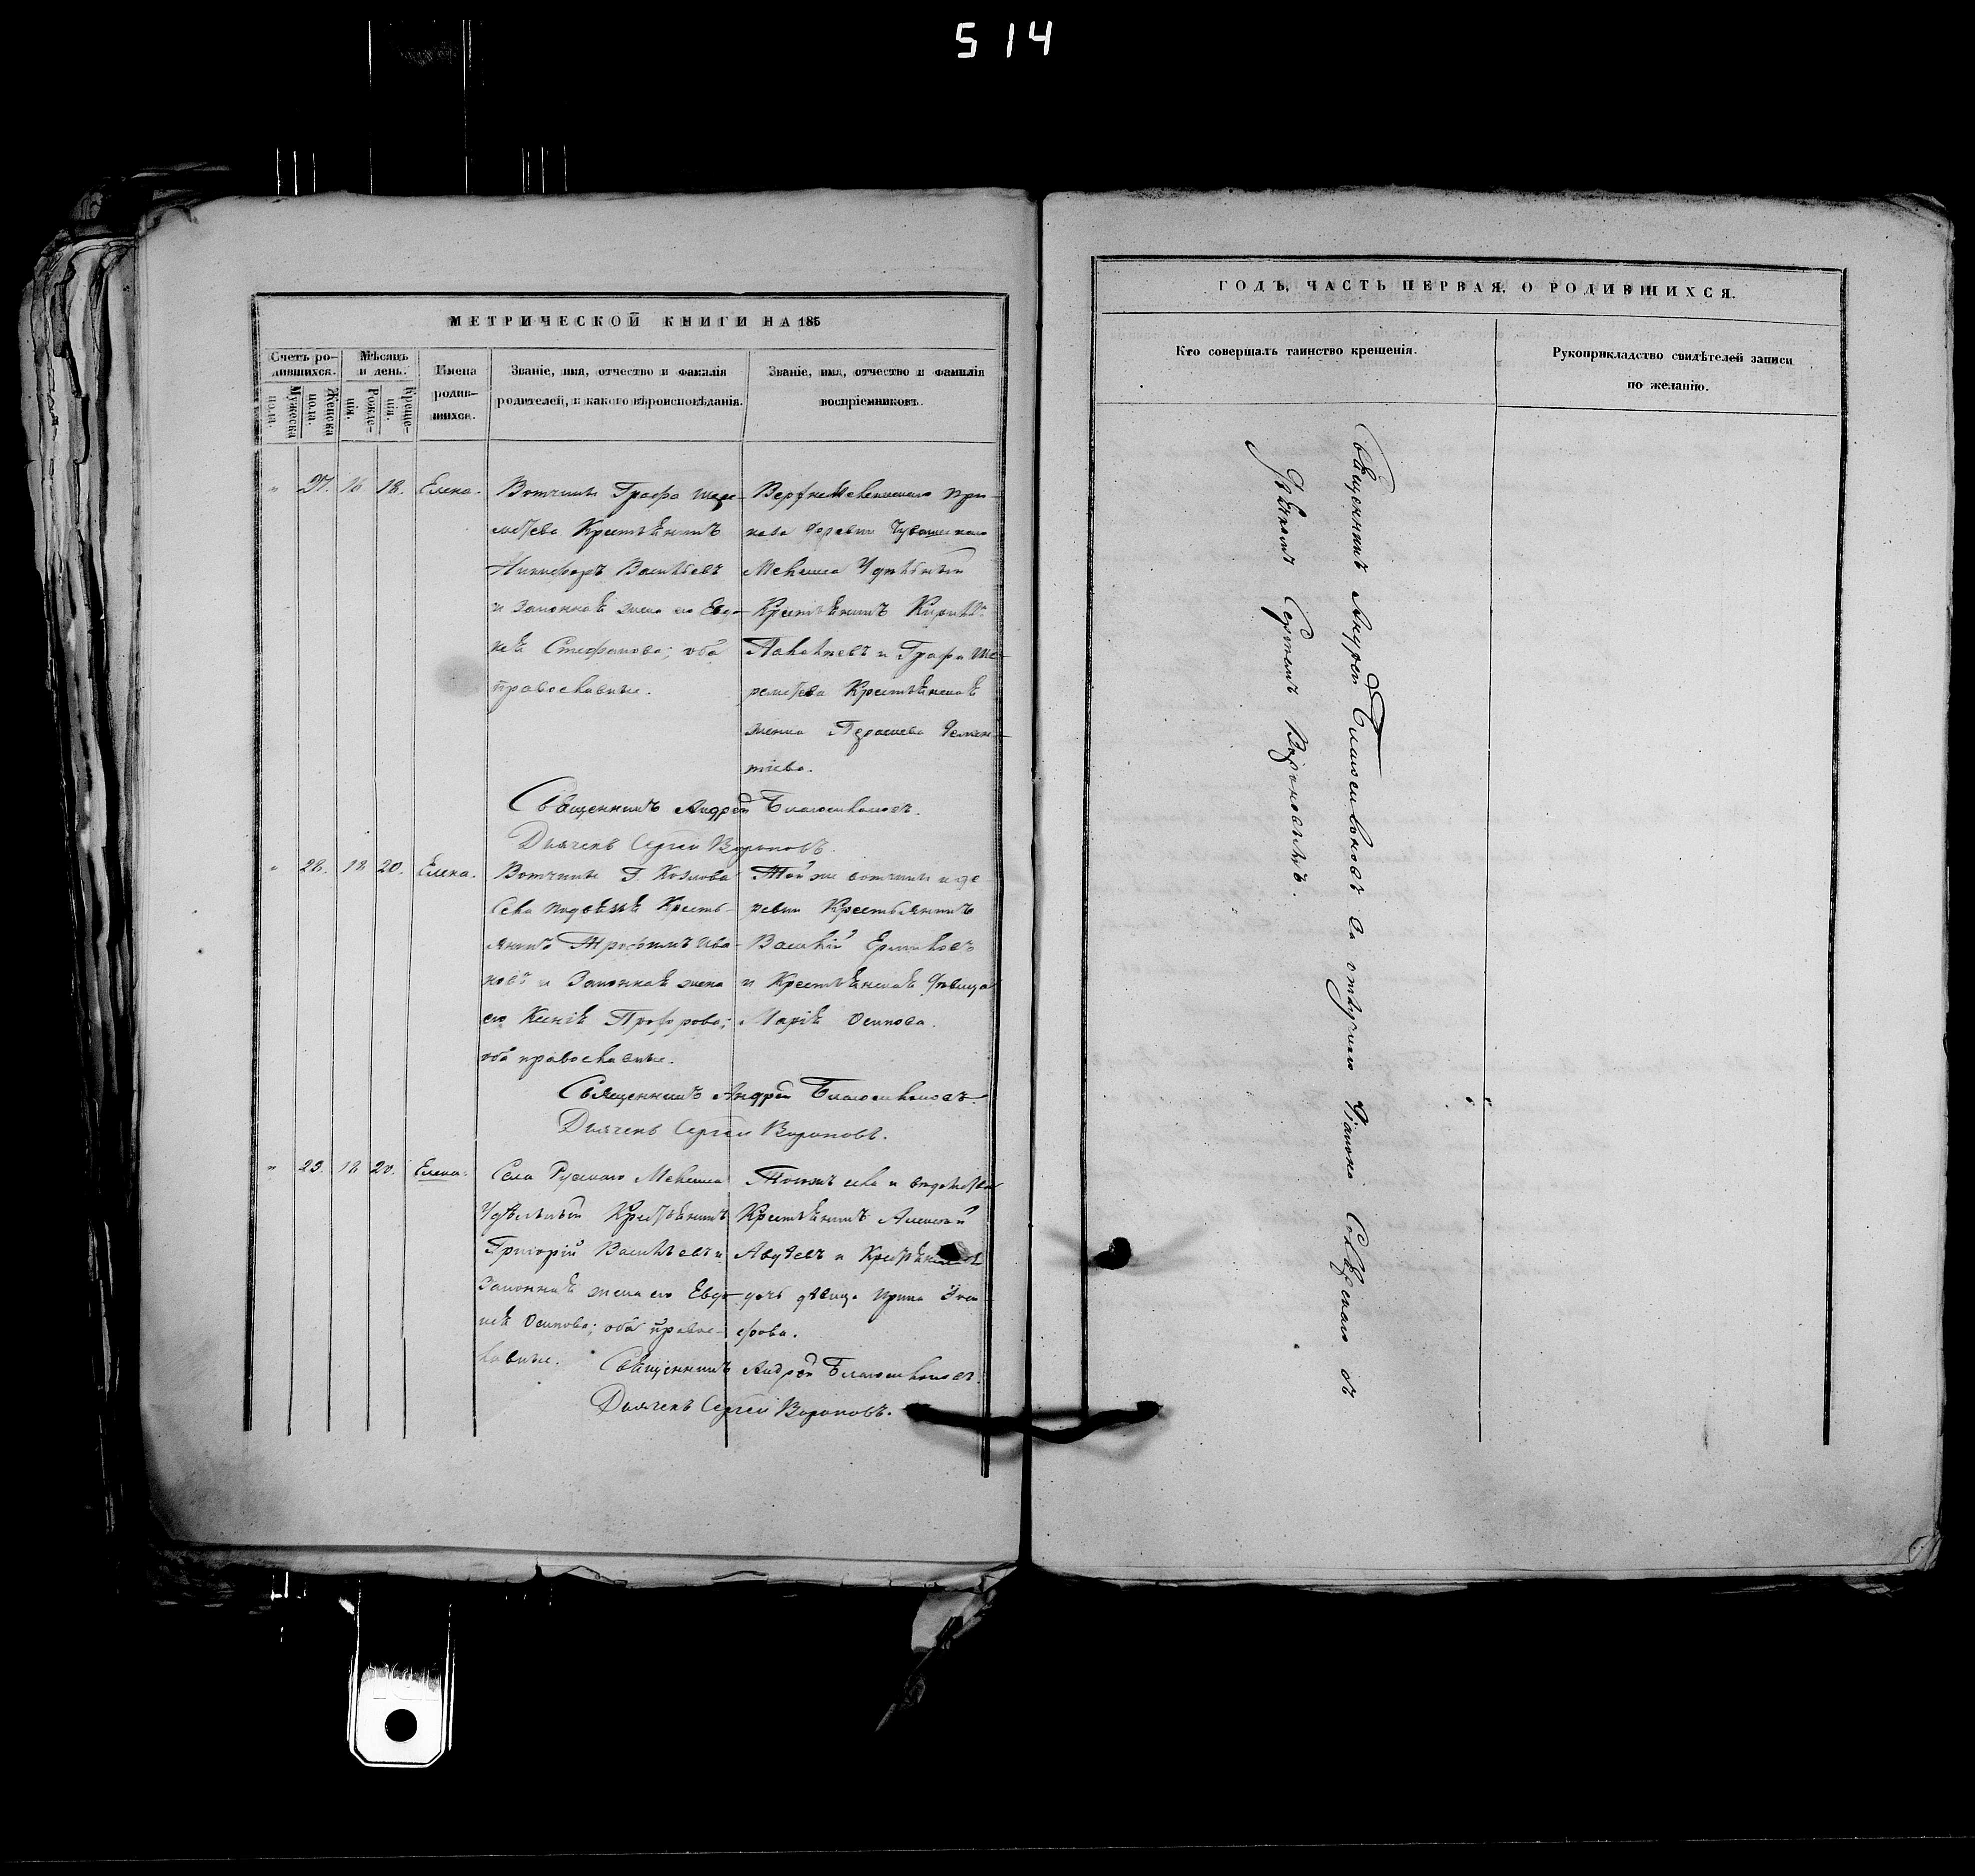 514
МЕТРИЧЕСКОЙ КНИГИ НА 185
Счетъ ро-
дившихся.
Мужеска
пола.
Женска
пола.
Мѣсяцъ
и день.
Рожде-
нія.
Креще-
нія.
Имена
родив-
шихся.
Званіе, имя, отчество и фамилія
родителей, и какого вѣроисповѣданія.
Званіе, имя, отчество и фамилія
воспріемниковъ.
" 27. 16 18. Елена.
Вотчины Графа Шере-
метева Крестьянинъ
Никифоръ Васильевъ
и законная жена его Евдо-
кія Стефанова; оба
православные.
при-
хода деревни Чувашскаго
Мекшеа Удѣльный
Крестьянинъ
и Графа Ше-
реметева Крестьянская
женка Демен-
тіева.
Священникъ Андрей
Дьячекъ Сергей Вороновъ.
" 28. 18 20. Елена.
Вотчины Г. Козлова
Села Крестья-
янинъ Трофимъ Ива-
новъ и Законная жена
его Ксенія Прохорова;
оба православные.
Той же вотчины и де
ревни Крестьянинъ
Василій Ермиловъ
и Крестьянская дѣвица
Марія Осипова.
Священникъ Андрей
Дьячекъ Сергей Вороновъ.
" 29. 18 20. Елена.
Села Рускаго Мекшеа
Удѣльный Крестьянинъ
Григорій Васильевъ и
Законная жена его Евдо-
кія Осипова; оба правос-
лавные.
Тогожъ села и вѣдомства
Крестьянинъ Алексей
Авдѣевъ и Крестьянская
дочь дѣвица Ирина
Священникъ Андрей
Дьячекъ Сергей Вороновъ.
ГОДЪ, ЧАСТЬ ПЕРВАЯ, О РОДИВШИХСЯ.
Кто совершалъ таинство крещенія.
Рукоприкладство свидѣтелей записи
по желанію.
Священникъ Андрей за Дьякона съ
Дьячкомъ Сергеемъ Вороновымъ.